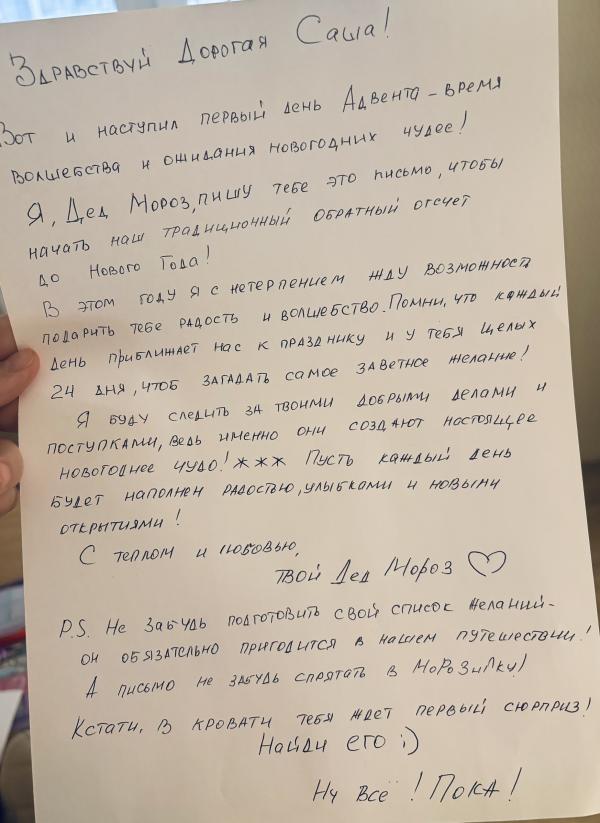 Здравствуй Дорогая Саша!
Вот и наступил первый день Адвента - время
волшебства и ожидания новогодних чудес!
Я, Дед Мороз, пишу тебе это письмо, чтобы
начать наш традиционный обратный отсчет
до Нового Года!
В этом году я с нетерпением жду возможности
подарить тебе радость и волшебство. Помни, что каждый
день приближает нас к празднику и у тебя целых
24 дня, чтоб загадать самое заветное желание!
Я буду следить за твоими добрыми делами и
поступками, ведь именно они создают настоящее
новогоднее чудо! *** Пусть каждый день
будет наполнен радостью, улыбками и новыми
открытиями!
С теплом и любовью,
твой Дед Мороз ♡
P.S. Не забудь подготовить свой список желаний -
он обязательно пригодится в нашем путешествии!
А письмо не забудь спрятать в морозилку)
Кстати, в кровати тебя ждет первый сюрприз!
Найди его ;)
Ну всё! Пока!